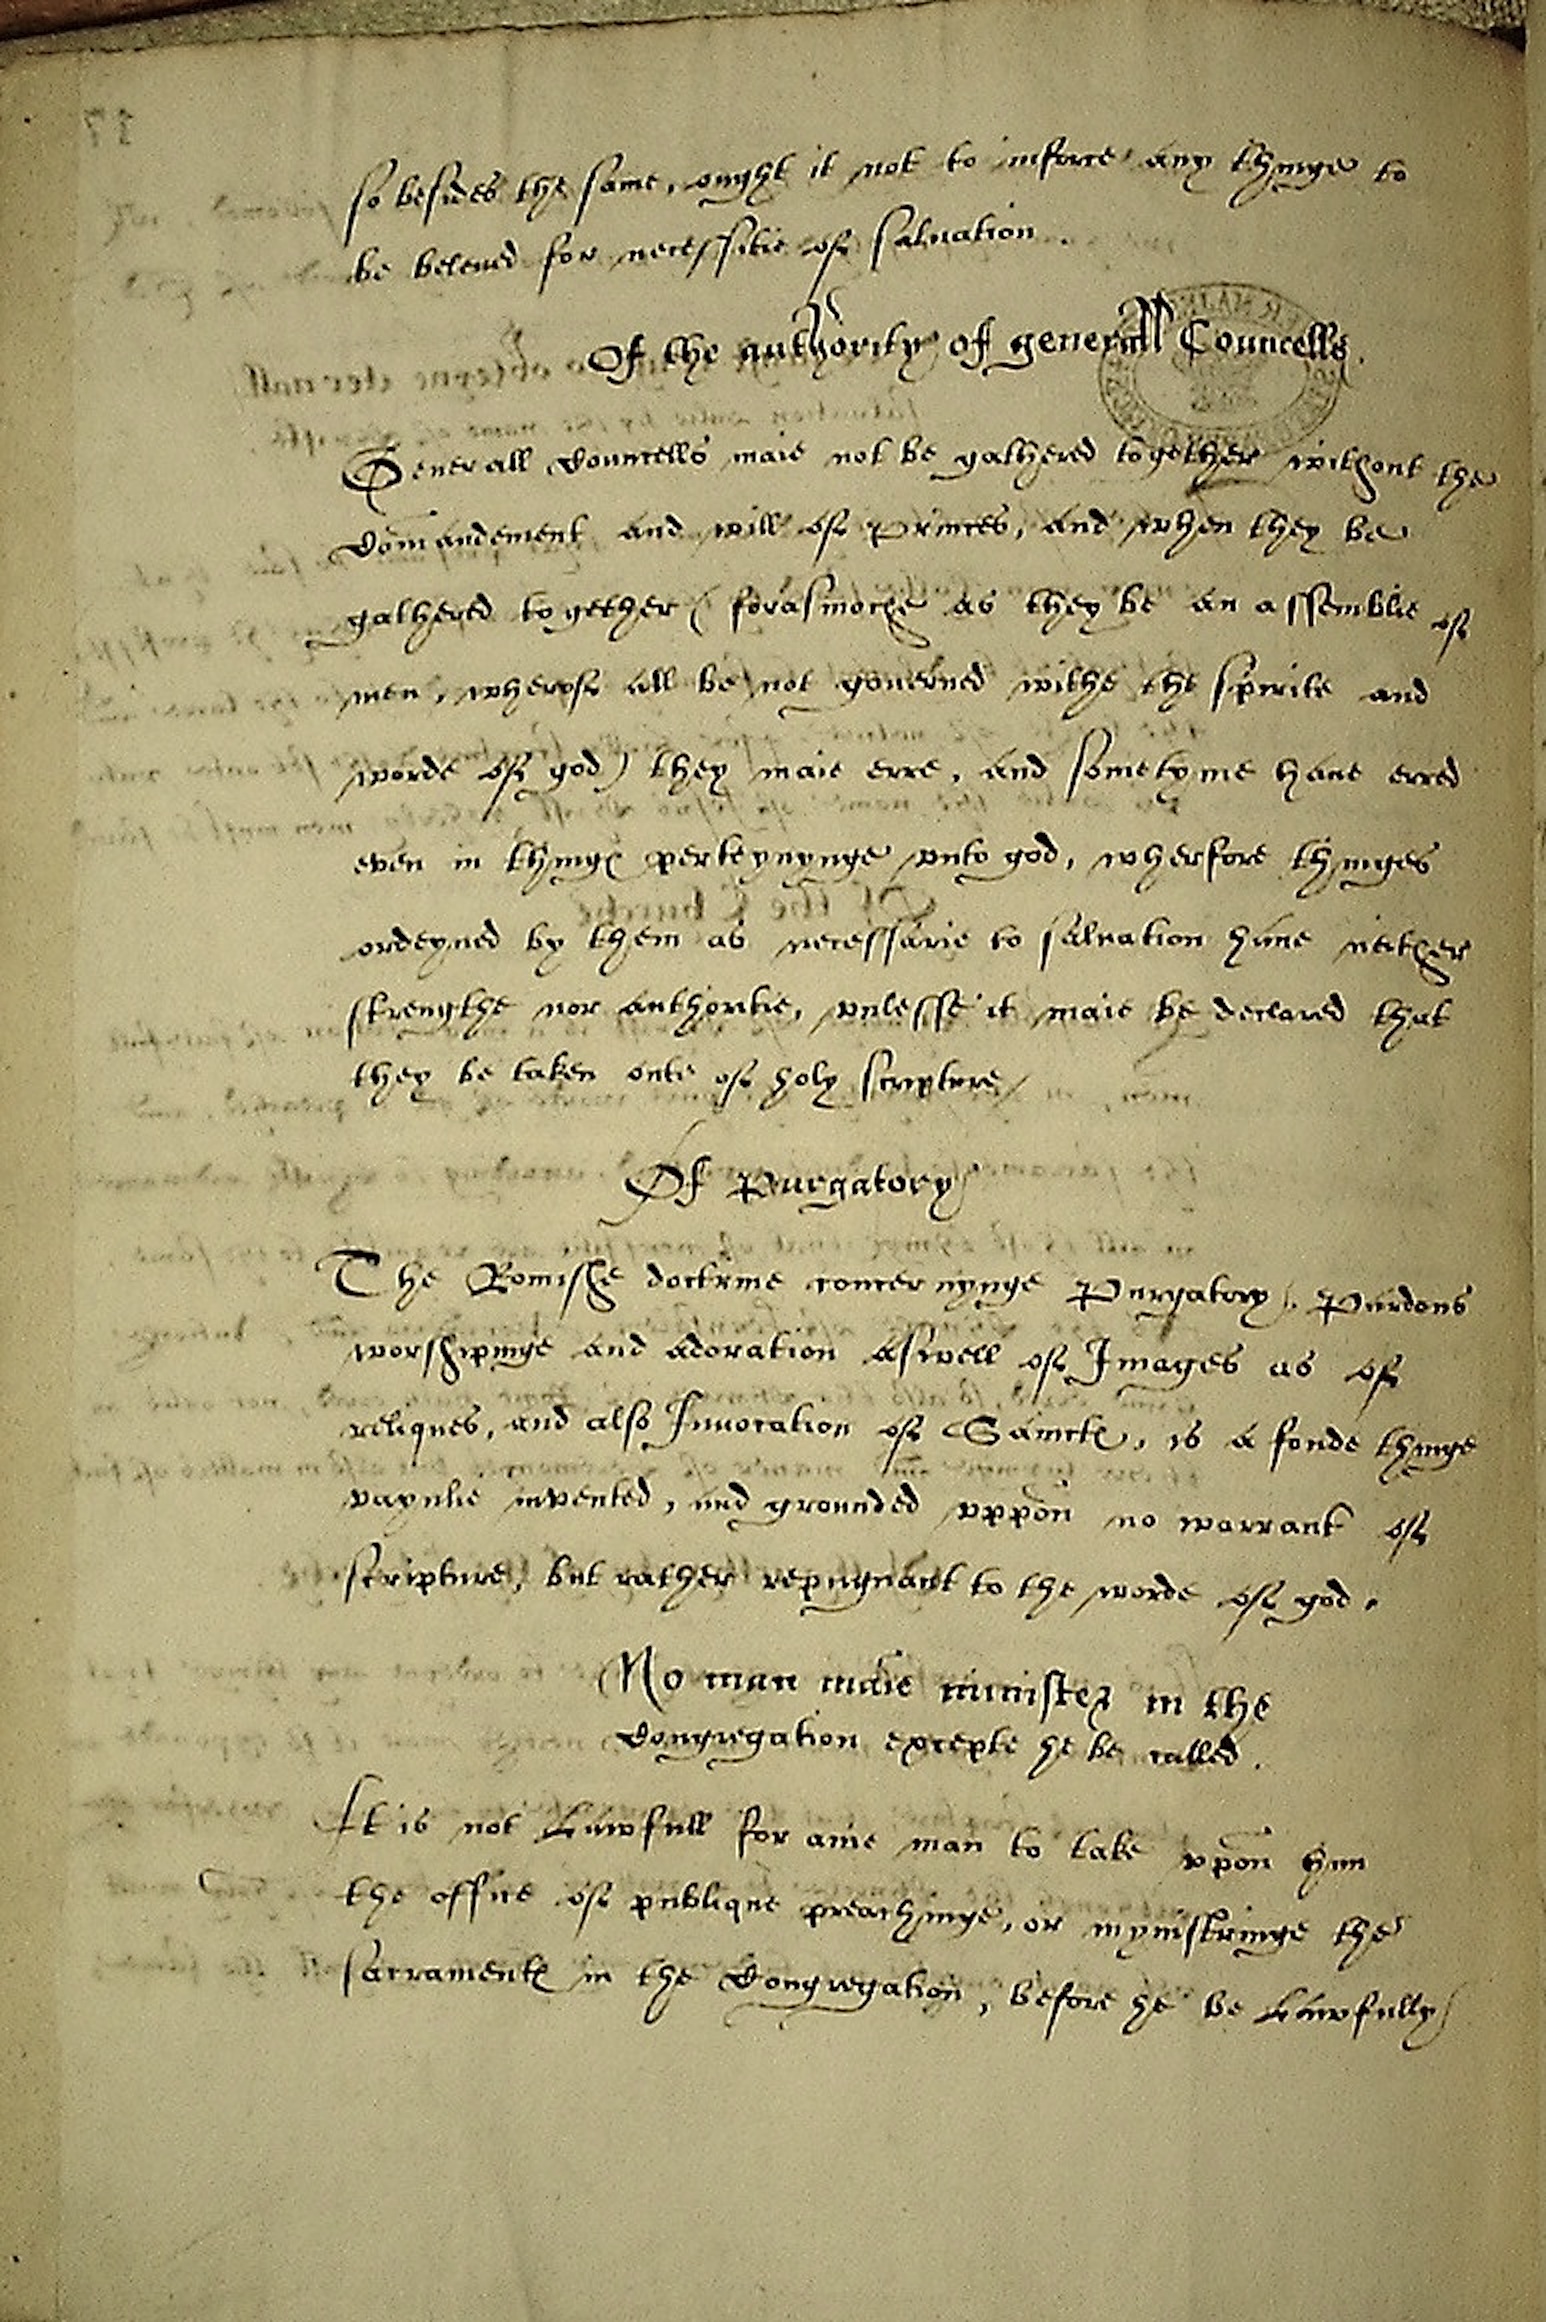 so besides the same, ought it not to inforce any thinge to
be beleued for necessitie of saluation.
Of the authority of generall Councells.
Generall Councells maie not be gathered together without the
Com̄andement and will of Princes, and when they be
gathered together (forasmoche as they be an assemblie of
men, wherof all be not gouerned withe the spirite and
worde of god) they maie erre, and sometyme haue erred
euen in thinges perteynynge vnto god, wherfore thinges
ordeyned by them as necessarie to saluation haue neither
strengthe nor authoritie, vnlesse it maie be declared that
they be taken oute of holy scripture
Of Purgatory
The Romishe doctrine concernynge Purgatory, Pardons
worshipinge and adoration aswell of Images as of
reliques, and also Inuocation of Sainctes, is a fonde thinge
vaynlie invented, and grounded vppon no warrant of
scripture, but rather repugnant to the worde of god.
No man maie minister in the
Congregation excepte he be called.
It is not Lawfull for anie man to take vpon him
the office of publique preachinge, or mynistringe the
sacramentes in the Congregation, before he be Lawfully